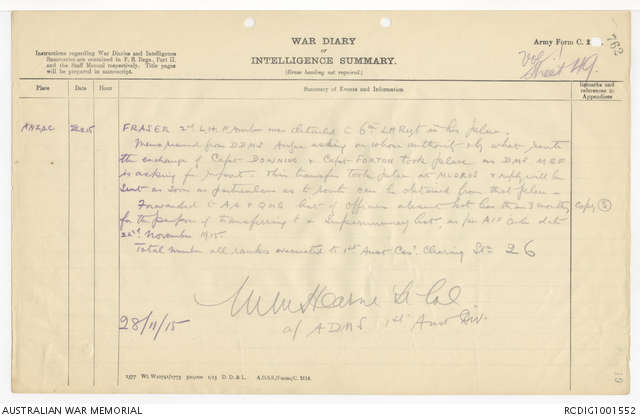 WAR DIARY
or
INTELLIGENCE SUMMARY.
(Erase heading not required.)
Army Form C. 2
762
Instructions regarding War Diaries and Intelligence
Summaries are contained in F. S. Regs., Part II.
and the Staff Manual respectively. Title pages
will be prepared in manuscript.
Place Date Hour Summary of Events and Information Remarks and references to Appendices
FRASER 2nd L.H.F. Amb was detailed 6th LH Regt in his place.
Memo received from DDMS Anzac asking on whose authority & by what route
the exchange of Capt DOWNING & Capt FORTON took place as DMS MEF
is asking for report. This transfer took place at MUDROS & reply will be
sent as soon as particulars as to route can be obtained from that place -
Forwarded to AA & QMG list of officers absent not less than 3 months, Copy
for the purpose of transferring to a Supernumerary list, as per AIF Order date
22nd November 1915.
Total number all ranks evacuated to 1st Aust Cas. Clearing Stn 26
Hearne Lt Col
a/ ADMS 1st Aust Div.
28/11/15
AUSTRALIAN WAR MEMORIAL
RCDIG1001552